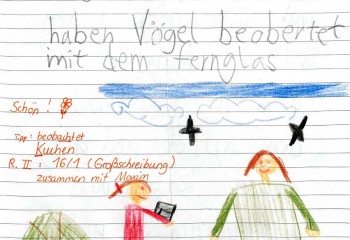 haben Vögel beobertet
mit dem fernglas
Schön!
Tipp: beobachtet
Kuchen
R. II: 16/1 (Großschreibung)
zusammen mit Maxim